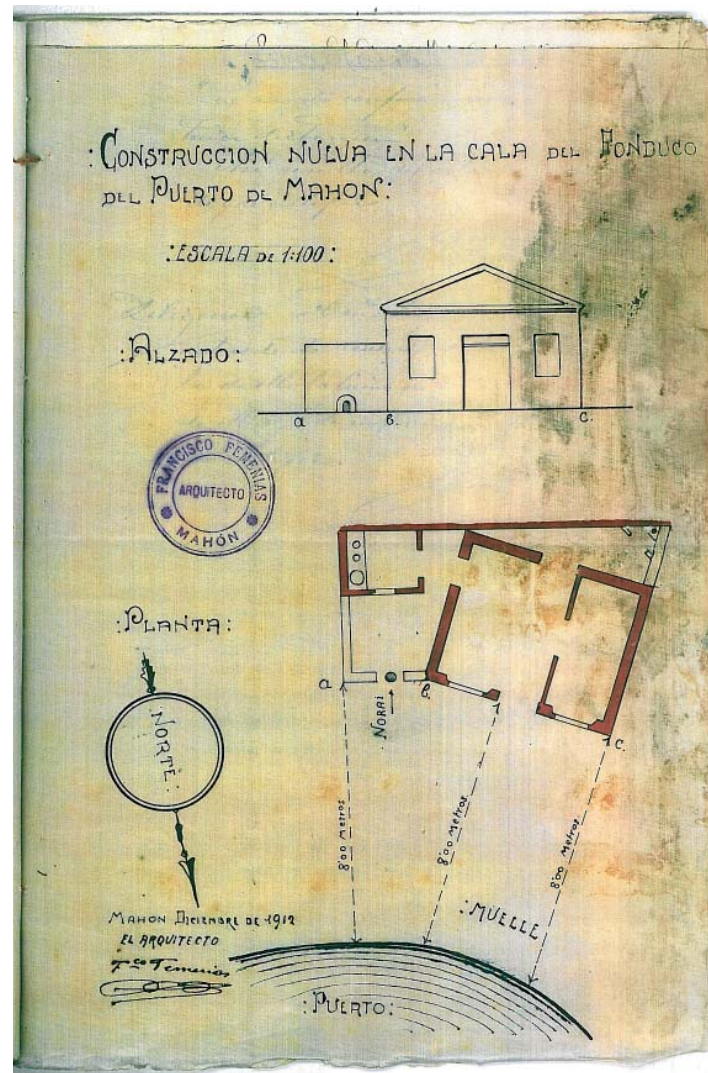 :CONSTRUCCION NUEVA EN LA CALA DEL FONDUCO
DEL PUERTO DE MAHON:
:ESCALA DE 1:100:
:ALZADO:
a b. c.
FRANCISCO FEMENIAS
ARQUITECTO
MAHÓN
:PLANTA:
NORTE:
a b. c.
NORAI
8'00 Metros
8'00 Metros
8'00 Metros
:MUELLE
MAHON DICIEMBRE DE 1912
EL ARQUITECTO
Fco Femenias
:PUERTO: